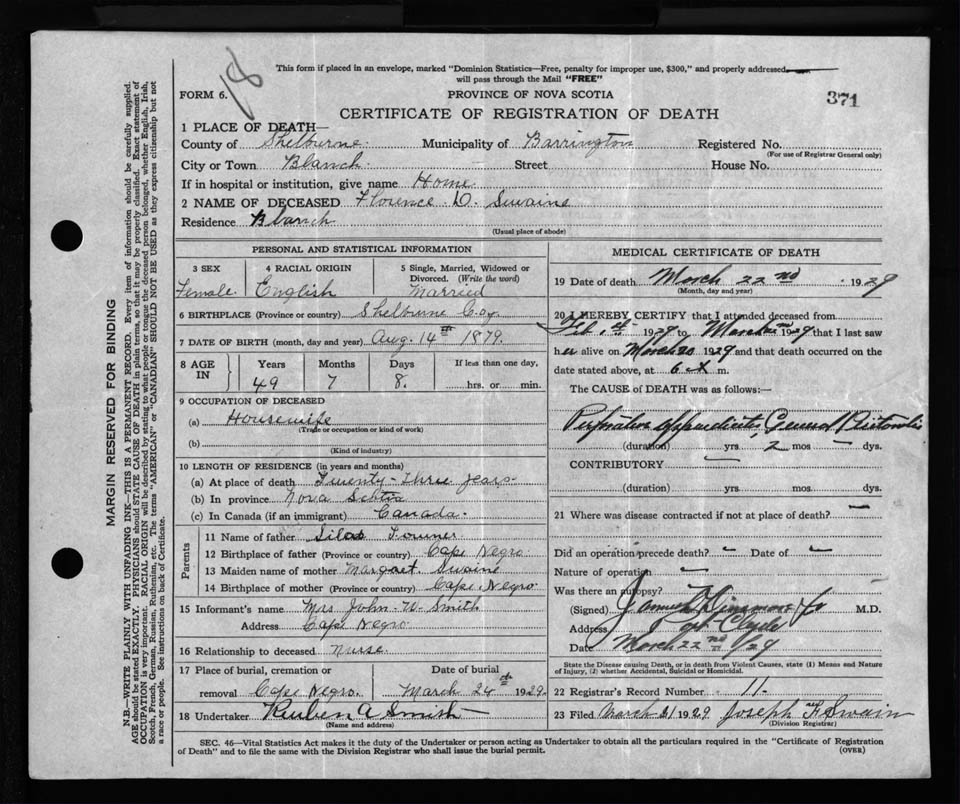 18
This form if placed in an envelope, marked "Dominion Statistics—Free, penalty for improper use, $300," and properly addressed
will pass through the Mail "FREE"
FORM 6.
PROVINCE OF NOVA SCOTIA
371
CERTIFICATE OF REGISTRATION OF DEATH
1 PLACE OF DEATH—
County of Shelburne Municipality of Barrington Registered No.
(For use of Registrar General only)
City or Town Blanch Street House No.
If in hospital or institution, give name Home
2 NAME OF DECEASED Florence D. Swaine
Residence Blanch
(Usual place of abode)
PERSONAL AND STATISTICAL INFORMATION
3 SEX 4 RACIAL ORIGIN 5 Single, Married, Widowed or
Divorced. (Write the word)
Female English Married
6 BIRTHPLACE (Province or country) Shelburne Co.
7 DATE OF BIRTH (month, day and year) Aug. 14th 1879.
8 AGE IN Years Months Days If less than one day,
49 7 8. hrs. or min.
9 OCCUPATION OF DECEASED
(a) Housewife
(Trade or occupation or kind of work)
(b)
(Kind of industry)
10 LENGTH OF RESIDENCE (in years and months)
(a) At place of death Twenty-Three years
(b) In province Nova Scotia
(c) In Canada (if an immigrant) Canada.
Parents
11 Name of father Silas
12 Birthplace of father (Province or country) Cape Negro
13 Maiden name of mother Margaret Swaine
14 Birthplace of mother (Province or country) Cape Negro.
15 Informant's name Mrs John W. Smith
Address Cape Negro
16 Relationship to deceased Nurse.
17 Place of burial, cremation or Date of burial
removal Cape Negro. March 24th 1929.
18 Undertaker Reuben A Smith
(Name and address)
MEDICAL CERTIFICATE OF DEATH
19 Date of death March 22nd 1929
(Month, day and year)
20 I HEREBY CERTIFY that I attended deceased from
Feb. 4th 1929 to March 1929 that I last saw
her alive on March 20 1929 and that death occurred on the
date stated above, at 6 m.
The CAUSE of DEATH was as follows:—
Perforative appendicitis, General Peritonitis
(duration) yrs. 2 mos — dys.
CONTRIBUTORY —
(duration) yrs. mos. dys.
21 Where was disease contracted if not at place of death? —
Did an operation precede death? — Date of —
Nature of operation —
Was there an autopsy?
(Signed) M.D.
Address Port Clyde
Date March 22nd 1929
State the Disease causing Death, or in death from Violent Causes, state (1) Means and Nature
of Injury, (2) whether Accidental, Suicidal or Homicidal.
22 Registrar's Record Number 11.
23 Filed March 21 1929 Joseph Swain
(Division Registrar)
SEC. 46—Vital Statistics Act makes it the duty of the Undertaker or person acting as Undertaker to obtain all the particulars required in the "Certificate of Registration
of Death" and to file the same with the Division Registrar who shall issue the burial permit.
(OVER)
MARGIN RESERVED FOR BINDING
N.B.—WRITE PLAINLY WITH UNFADING INK—THIS IS A PERMANENT RECORD. Every item of information should be carefully supplied.
AGE should be stated EXACTLY. PHYSICIANS should STATE CAUSE OF DEATH in plain terms, so that it may be properly classified. Exact statement of
OCCUPATION is very important. RACIAL ORIGIN will be described by stating to what people or tongue the deceased person belonged, whether English, Irish,
Scotch, French, German, Russian, Ruthenian, etc. The terms "AMERICAN" or "CANADIAN" SHOULD NOT BE USED as they express citizenship but not
a race or people. See instructions on back of Certificate.